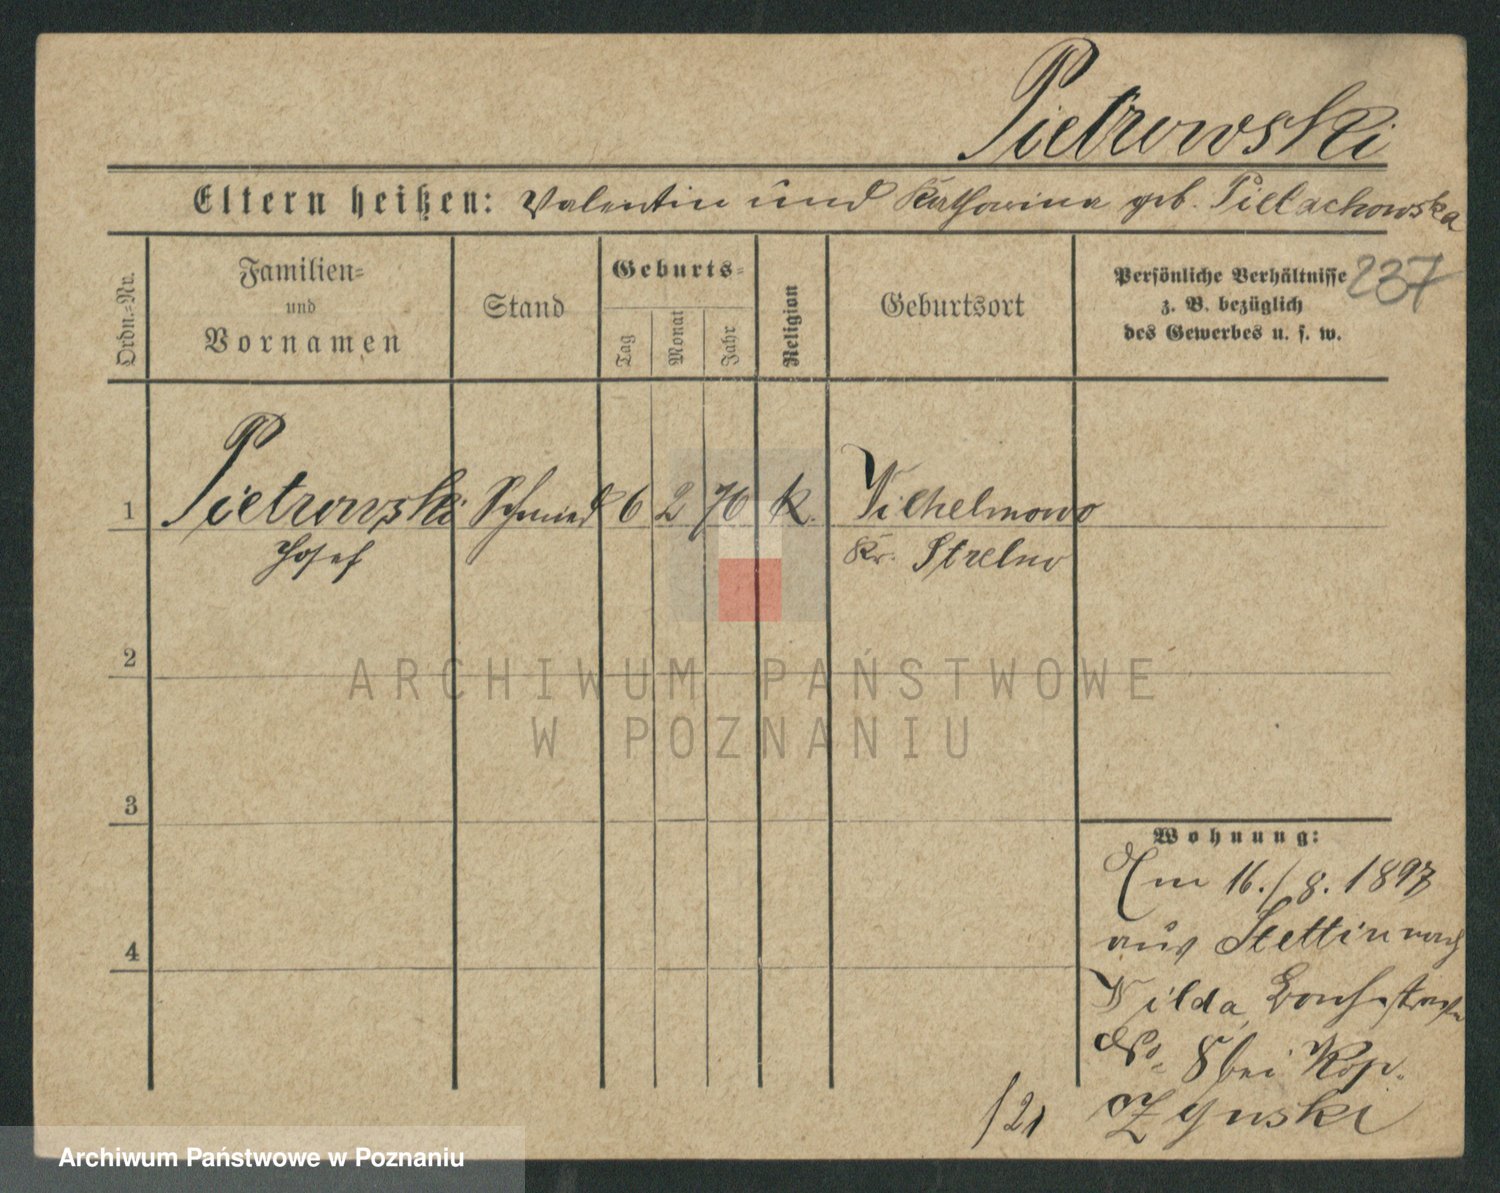 Pietrowski
Eltern heißen: Valentin und Katharina geb. Pietlachowska
237
Ordn.-Nr.
Familien-
und
Vornamen
Stand
Geburts-
Tag
Monat
Jahr
Religion
Geburtsort
Persönliche Verhältnisse
z. B. bezüglich
des Gewerbes u. s. w.
1 Pietrowski Schmied 6 2 76 k. Wilhelmowo
Josef Kr. Strelno
2
3
4
Wohnung:
Am 16./8. 1897
aus Stettin nach
Wilda,
No. 8 bei Kop-
zynski
/21
ARCHIWUM PAŃSTWOWE
W POZNANIU
Archiwum Państwowe w Poznaniu